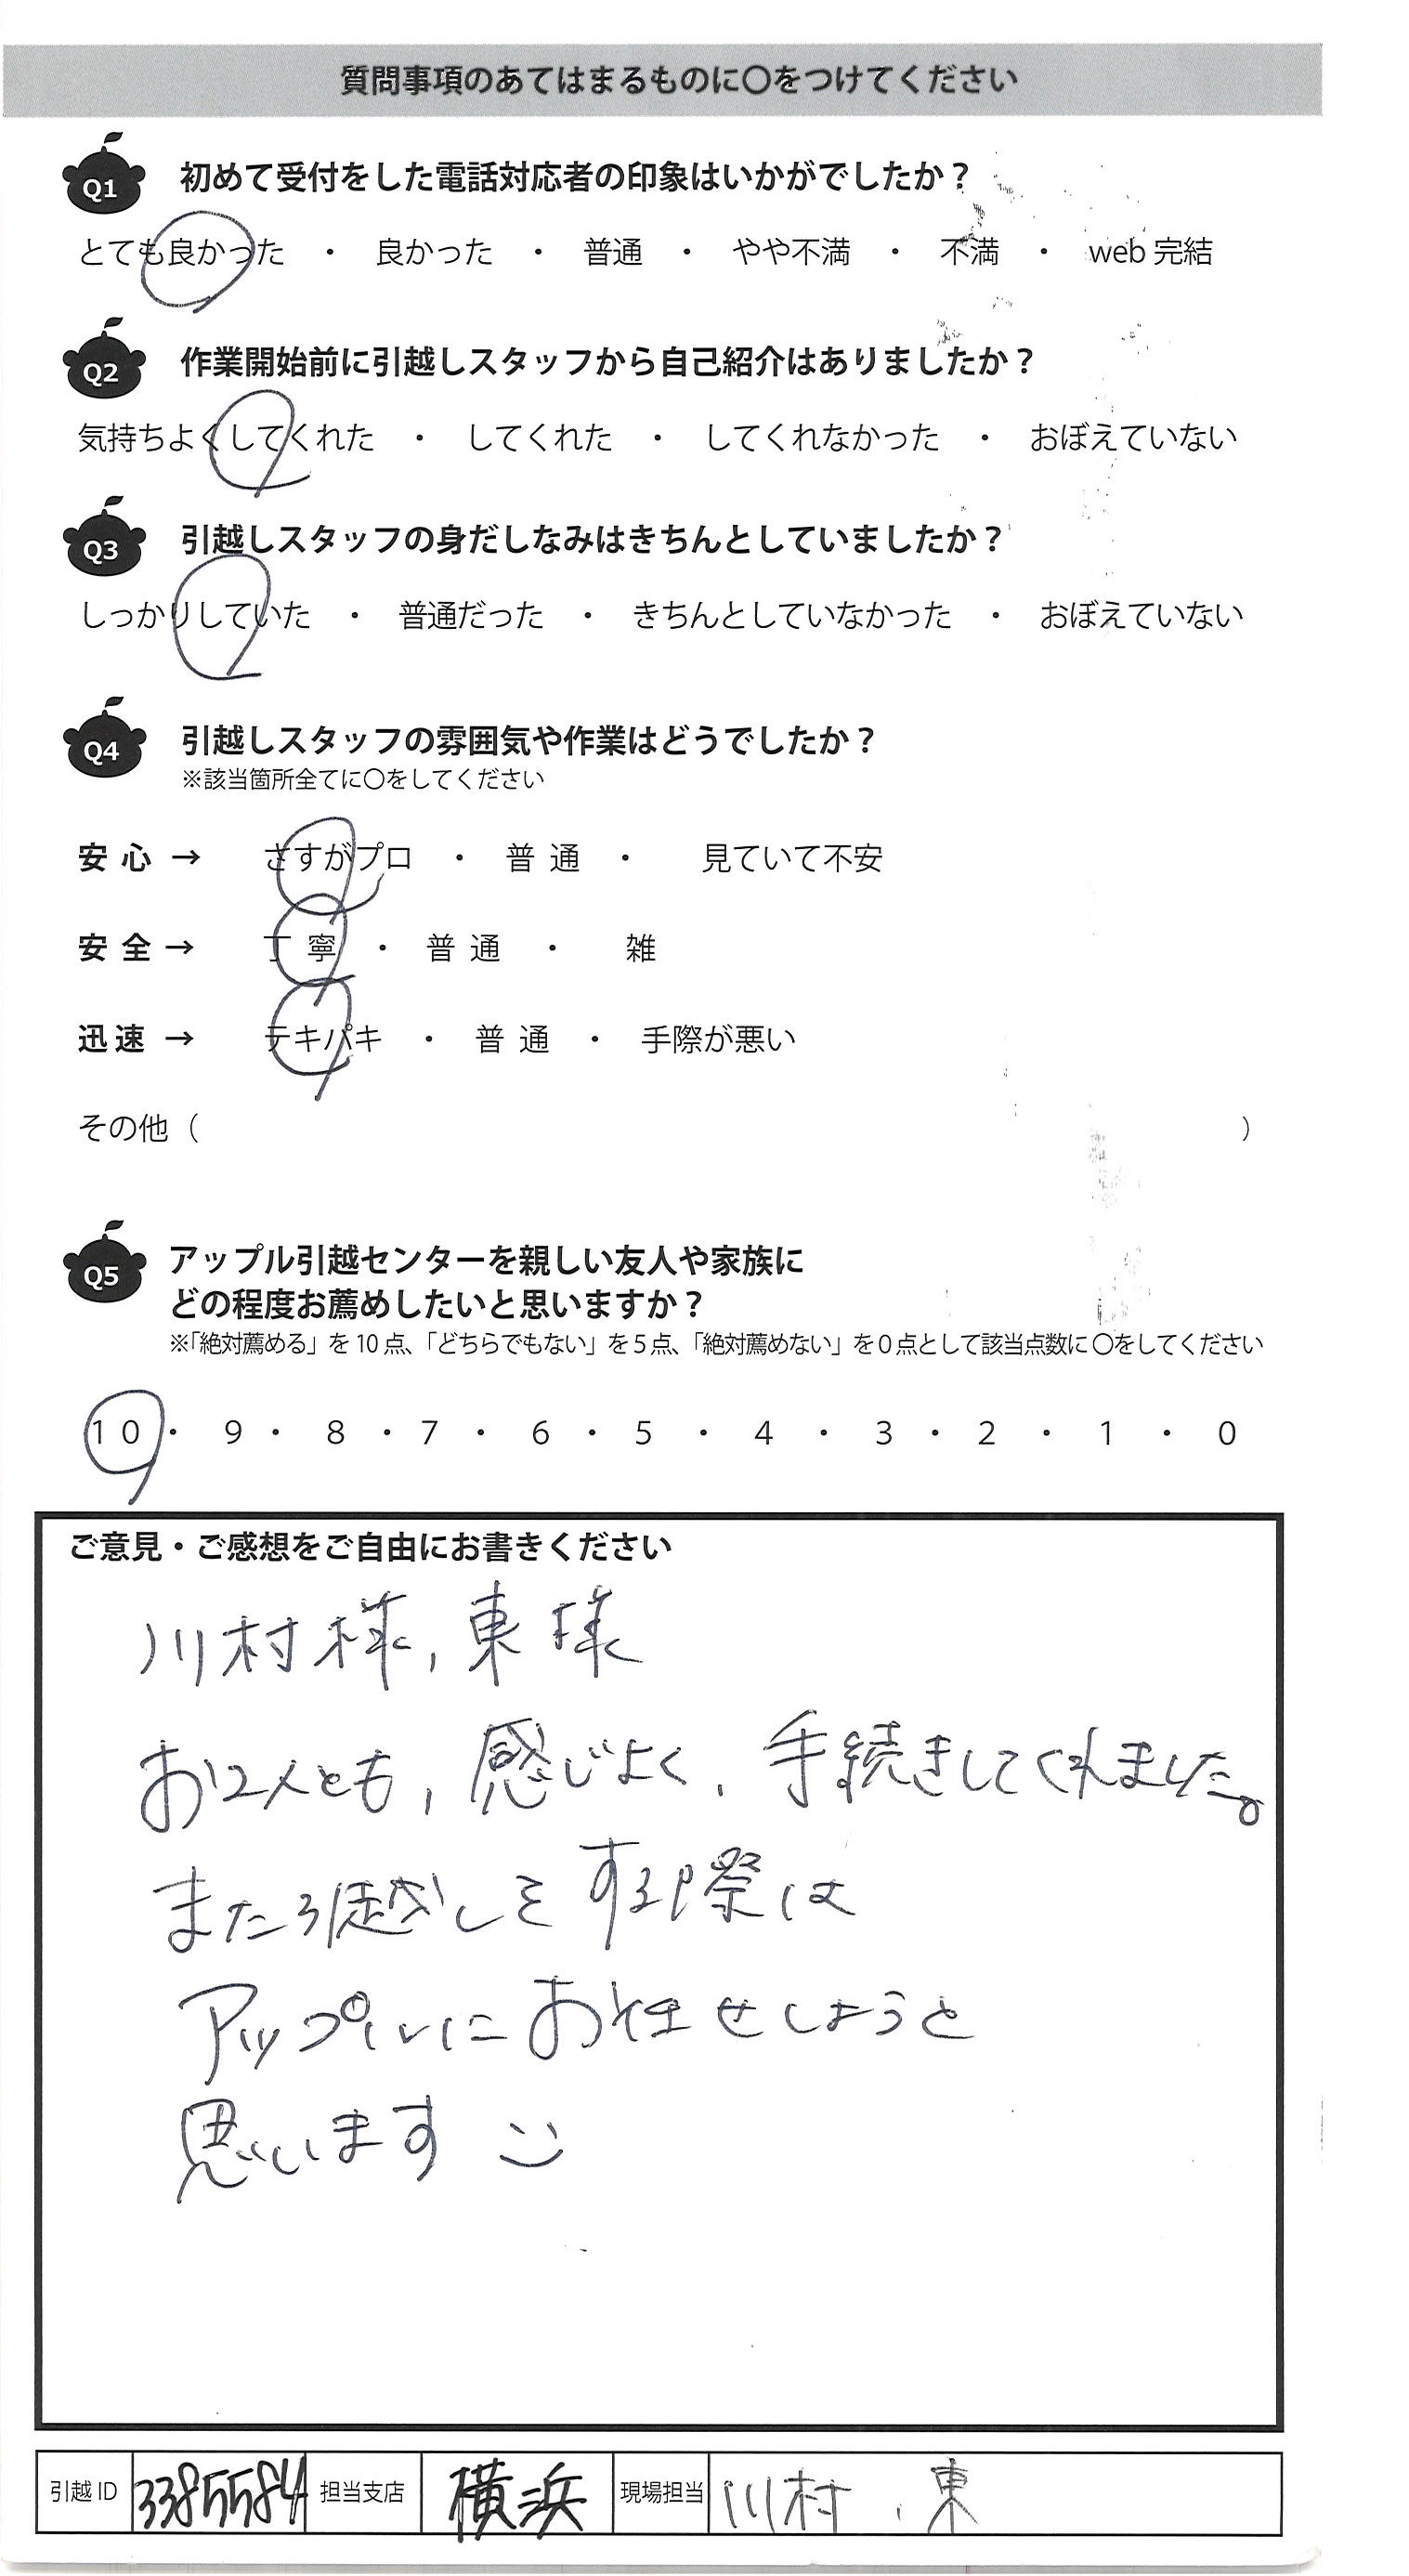 質問事項のあてはまるものに〇をつけてください
Q1 初めて受付をした電話対応者の印象はいかがでしたか？
とても良かった ・ 良かった ・ 普通 ・ やや不満 ・ 不満 ・ web 完結
Q2 作業開始前に引越しスタッフから自己紹介はありましたか？
気持ちよくしてくれた ・ してくれた ・ してくれなかった ・ おぼえていない
Q3 引越しスタッフの身だしなみはきちんとしていましたか？
しっかりしていた ・ 普通だった ・ きちんとしていなかった ・ おぼえていない
Q4 引越しスタッフの雰囲気や作業はどうでしたか？
※該当箇所全てに〇をしてください
安心 → さすがプロ ・ 普通 ・ 見ていて不安
安全 → 丁寧 ・ 普通 ・ 雑
迅速 → テキパキ ・ 普通 ・ 手際が悪い
その他（ ）
Q5 アップル引越センターを親しい友人や家族に
どの程度お薦めしたいと思いますか？
※「絶対薦める」を10点、「どちらでもない」を5点、「絶対薦めない」を0点として該当点数に〇をしてください
10 ・ 9 ・ 8 ・ 7 ・ 6 ・ 5 ・ 4 ・ 3 ・ 2 ・ 1 ・ 0
ご意見・ご感想をご自由にお書きください
川村様，東様
お2人とも，感じよく，手続きしてくれました。
また引越しをする際は
アップルにお任せしようと
思います
引越ID 3385584 担当支店 横浜 現場担当 川村、東